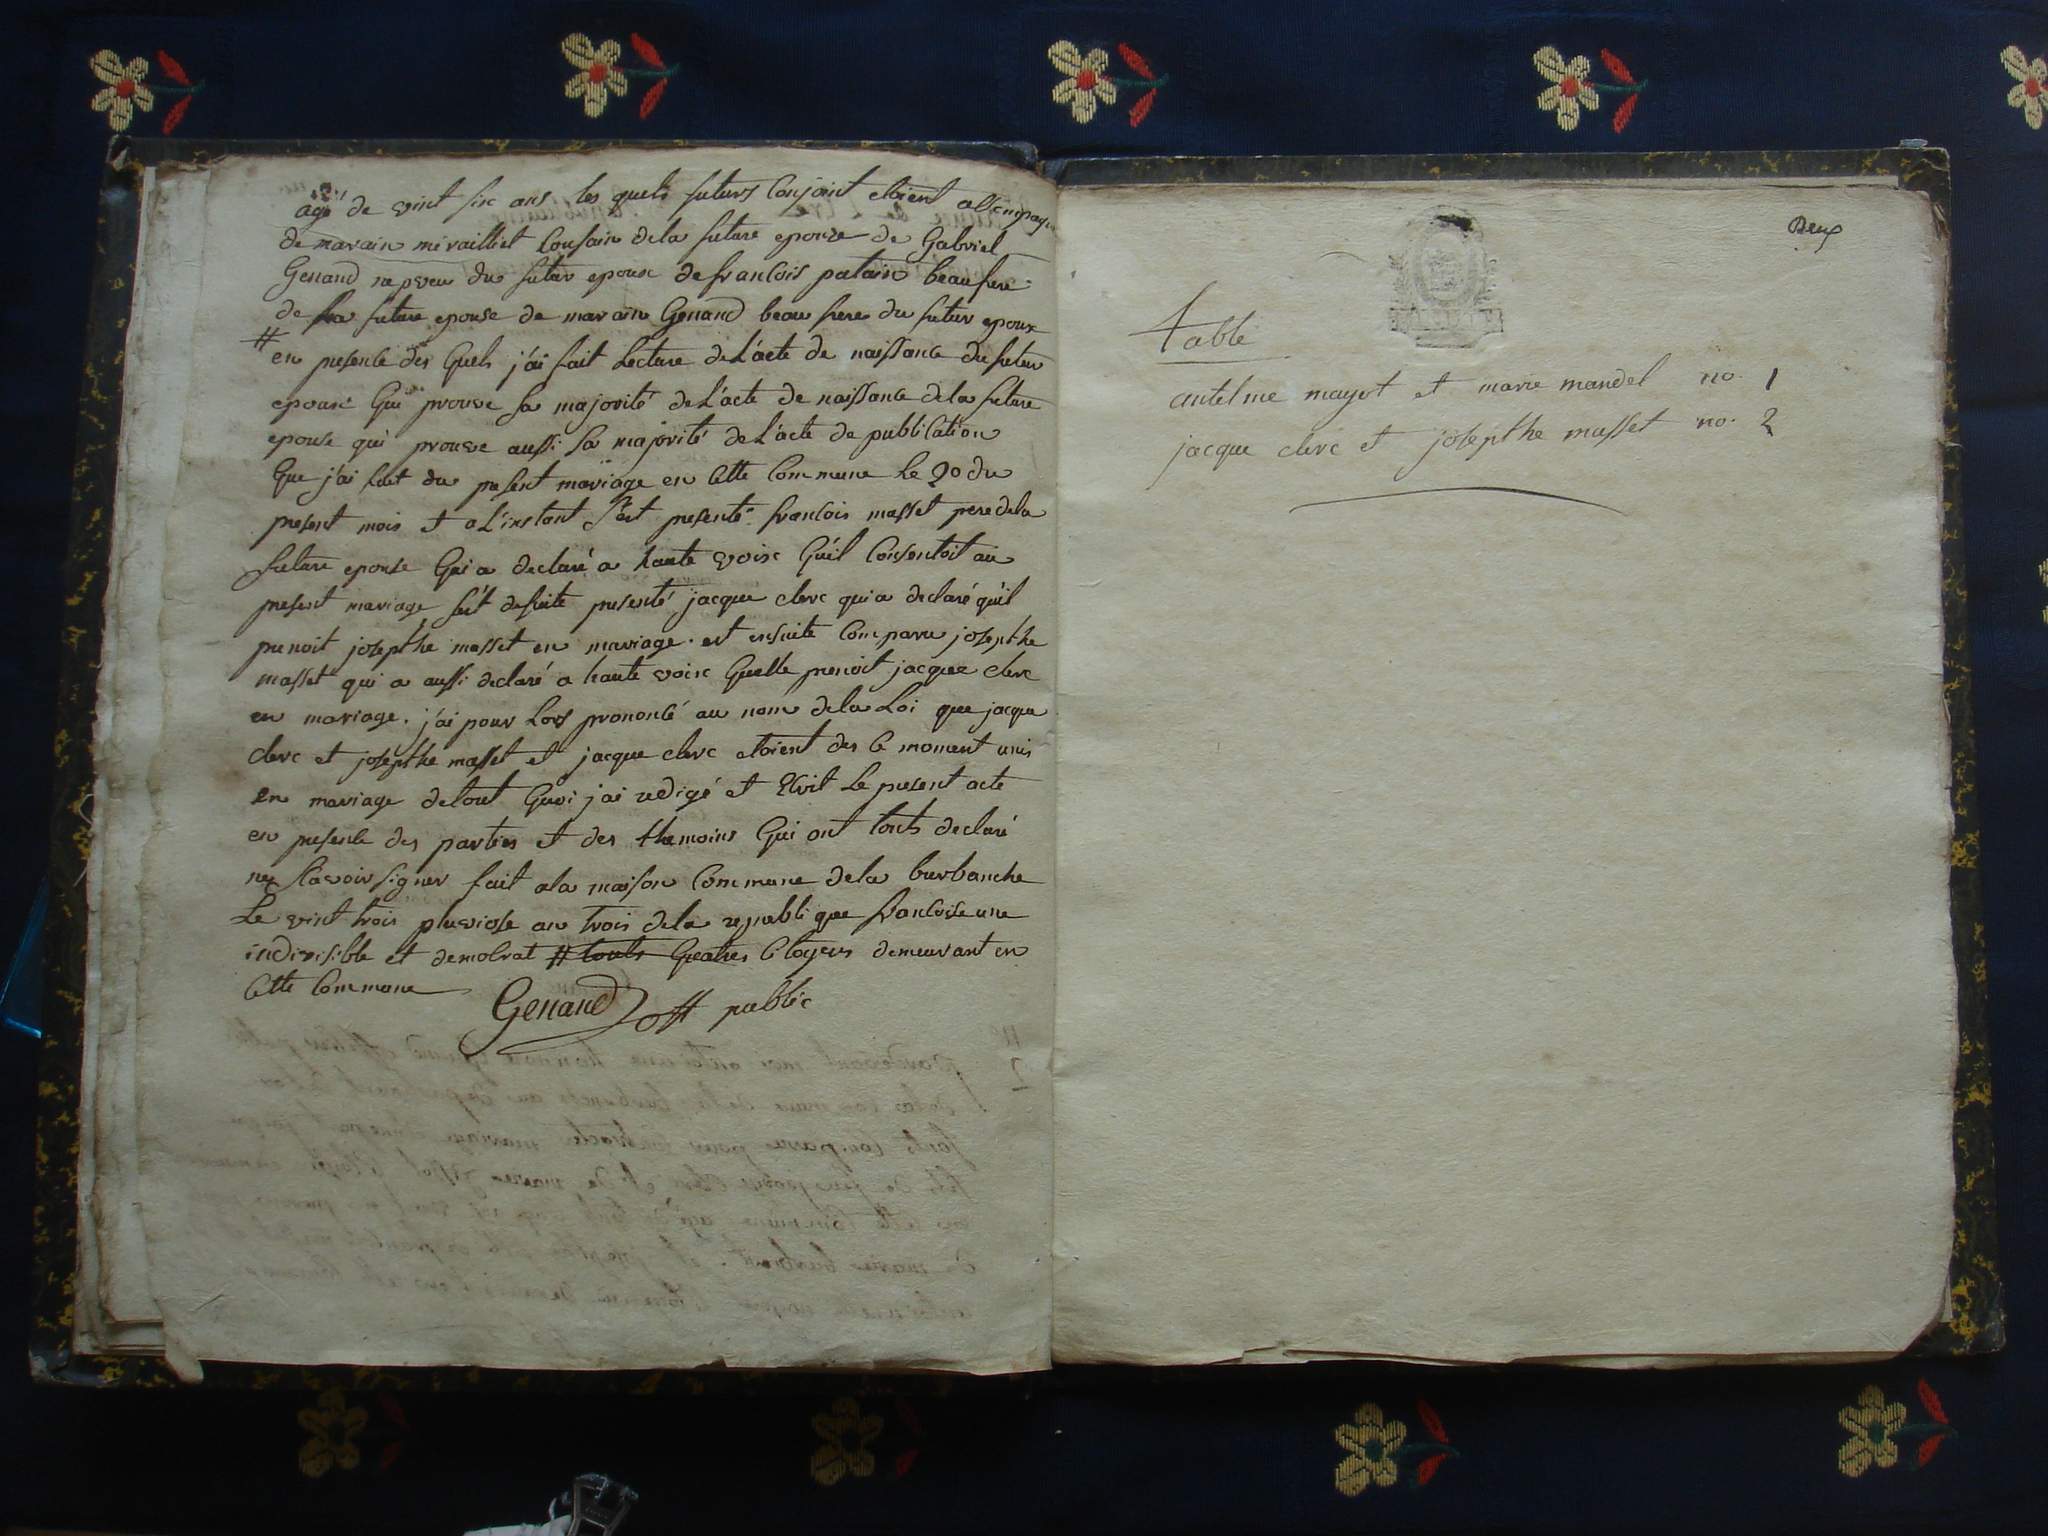 agé de vint six ans les quels futurs Conjoint etoient accompagn
de marain miraillet Cousain dela future epouze de Gabriel
Genand nepveu du futur epoux de francois patain beaufrere
de la future epouse de marain Genand beau frere du futur epoux
# en presence des quels j'ai fait Lecture de L'acte de naissance du futur
epoux Qui prouve sa majorité de L'acte de naissance dela future
epouse qui prouve aussi sa majorité de L'acte de publication
Que j'ai fait du present mariage en Cette Commune Le 20 du
present mois et a L'instant s'est presenté francois masset pere dela
future epouse Qui a declaré a haute voix Qu'il Consentoit au
present mariage s'est desuite presenté jacque clerc qui a declaré qu'il
prenoit josepthe masset en mariage. est ensuite Comparu josepthe
masset qui a aussi declaré a haute voix Quelle prenoit jacque clerc
en mariage. j'ai pour Lors prononcé au nom dela Loi que jacque
clerc et josepthe masset et jacque clerc etoient des Ce moment unis
en mariage detout Quoi j'ai redigé et Ecrit Le present acte
en presence des parties et des themoins Qui ont touts declaré
ne scavoir signer fait ala maison Commune dela burbanche
Le vint trois pluviose an trois dela republique francoise une
indivisible et demolrat # touts Quatres Citoyens demeurant en
Cette Commune
Genand off public
Deux
table
antelme mayot et marie mandel no. 1
jacque clerc et josepthe masset no. 2